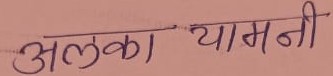 अलका यामनी